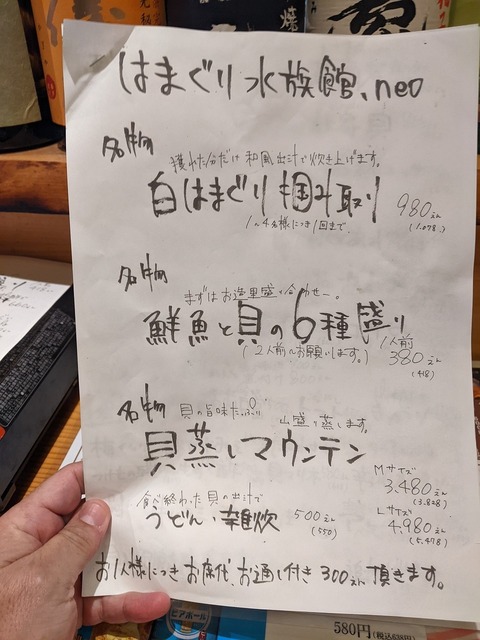 はまぐり水族館、neo
名物
獲れた分だけ和風出汁で炊き上げます。
白はまぐり掴み取り 980えん
1~4名様につき1回まで (1.078)
名物
まずはお造里盛り合わせー。
鮮魚と貝の6種盛り 1人前
(2人前~お願いします。) 380えん
(418)
名物 貝の旨味たっぷり 山盛り蒸します。
貝蒸しマウンテン
Mサイズ
3.480えん
(3.828)
食べ終わった貝の出汁で
Lサイズ
うどん、雑炊 500えん 4.980えん
(550) (5.478)
お1人様につきお席代、お通し付き300えん頂きます。
580円(税込638円)